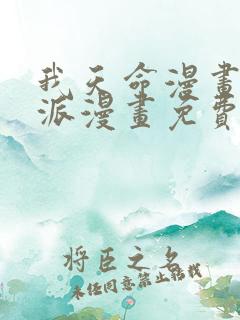 我天命漫畫
派漫畫免費
将臣之名
未经同意禁止转载